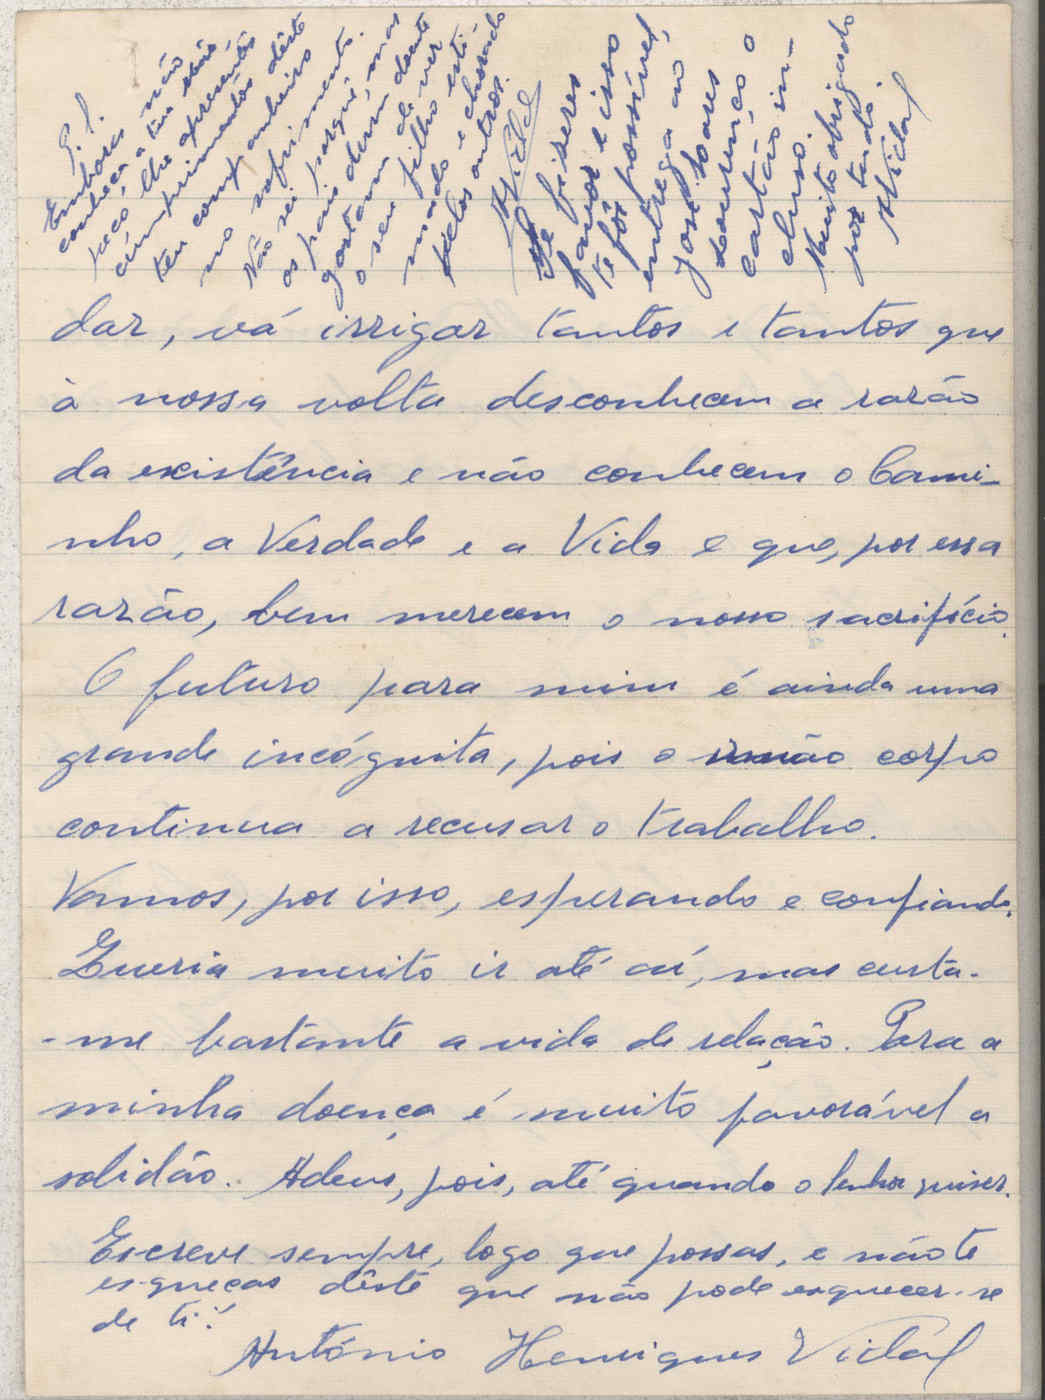 P.S.
Embora não
conheça a tua mãe,
peço lhe apresentes
cumprimentos dêste
teu companheiro
no sofrimento.
Não sei porquê, mas
os pais dum doente
gostam de ver
o seu filho esti-
mado e
pelos outros.
AVidal
Se fizeres
favor e isso
te fôr possível,
entrega ao
José Soares
Lourenço o
cartão in-
cluso.
Muito obrigado
por tudo.
AVidal
dar, vá irrigar tantos e tantos que
à nossa volta desconhecem a razão
da existência e não conhecem o Cami-
nho, a Verdade e a Vida e que, por essa
razão, bem merecem o nosso sacrifício.
O futuro para mim é ainda uma
grande incógnita, pois o irmão corpo
continua a recusar o trabalho.
Vamos, por isso, esperando e confiando.
Queria muito ir até aí, mas custa-
-me bastante a vida de relação. Para a
minha doença é muito favorável a
solidão. Adeus, pois, até quando o Senhor quiser.
Escreve sempre, logo que possas, e não te
esqueças dêste que não pode esquecer-se
de ti!
António Henriques Vidal